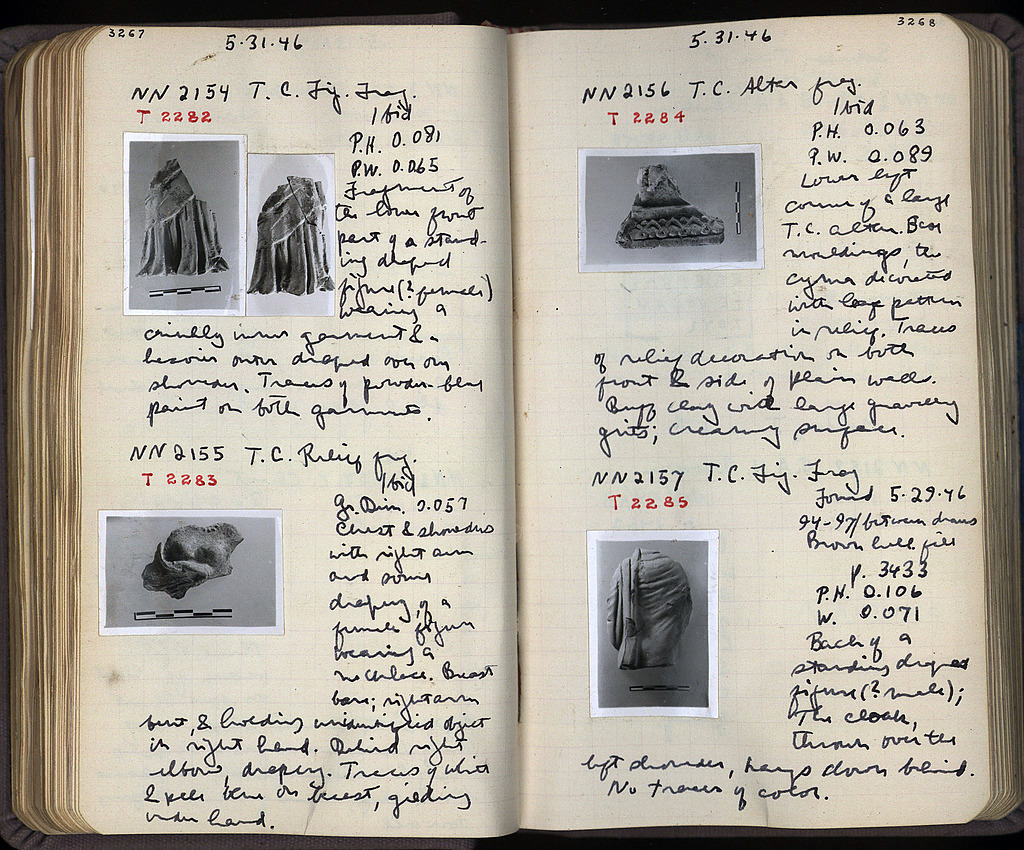 3267
5·31·46
NN 2154 T.C. Fig. Frag.
T 2282
Ibid
P.H. 0.081
P.W. 0.065
Fragment of
the lower front
part of a stand-
ing draped
figure (? female)
wearing a
crinkly inner garment & a
heavier outer draped over one
shoulder. Traces of powder-blue
paint on both garments.
NN 2155 T.C. Relief frg.
T 2283
Ibid
Gr. Dim. 0.057
Chest & shoulders
with right arm
and some
drapery, of a
female figure
wearing a
necklace. Breast
bare; right arm
bent, & holding unidentified object
in right hand. Behind right
elbow, drapery. Traces of white
& pale blue on breast, gilding
under hand.
3268
5·31·46
NN 2156 T.C. Altar frg.
T 2284
Ibid
P.H. 0.063
P.W. 0.089
Lower left
corner of a large
T.C. altar. Base
mouldings, the
cyma decorated
with leaf pattern
in relief. Traces
of relief decoration on both
front & side of plain walls.
Buff clay with large gravelly
grits; creamy surface.
NN 2157 T.C. Fig. Frag
T 2285
Found 5·29·46
94-97/ between drains
Brown hill fill
p. 3433
P.H. 0.106
W. 0.071
Back of a
standing draped
figure (? male);
The cloak,
thrown over the
left shoulder, hangs down behind.
No traces of color.